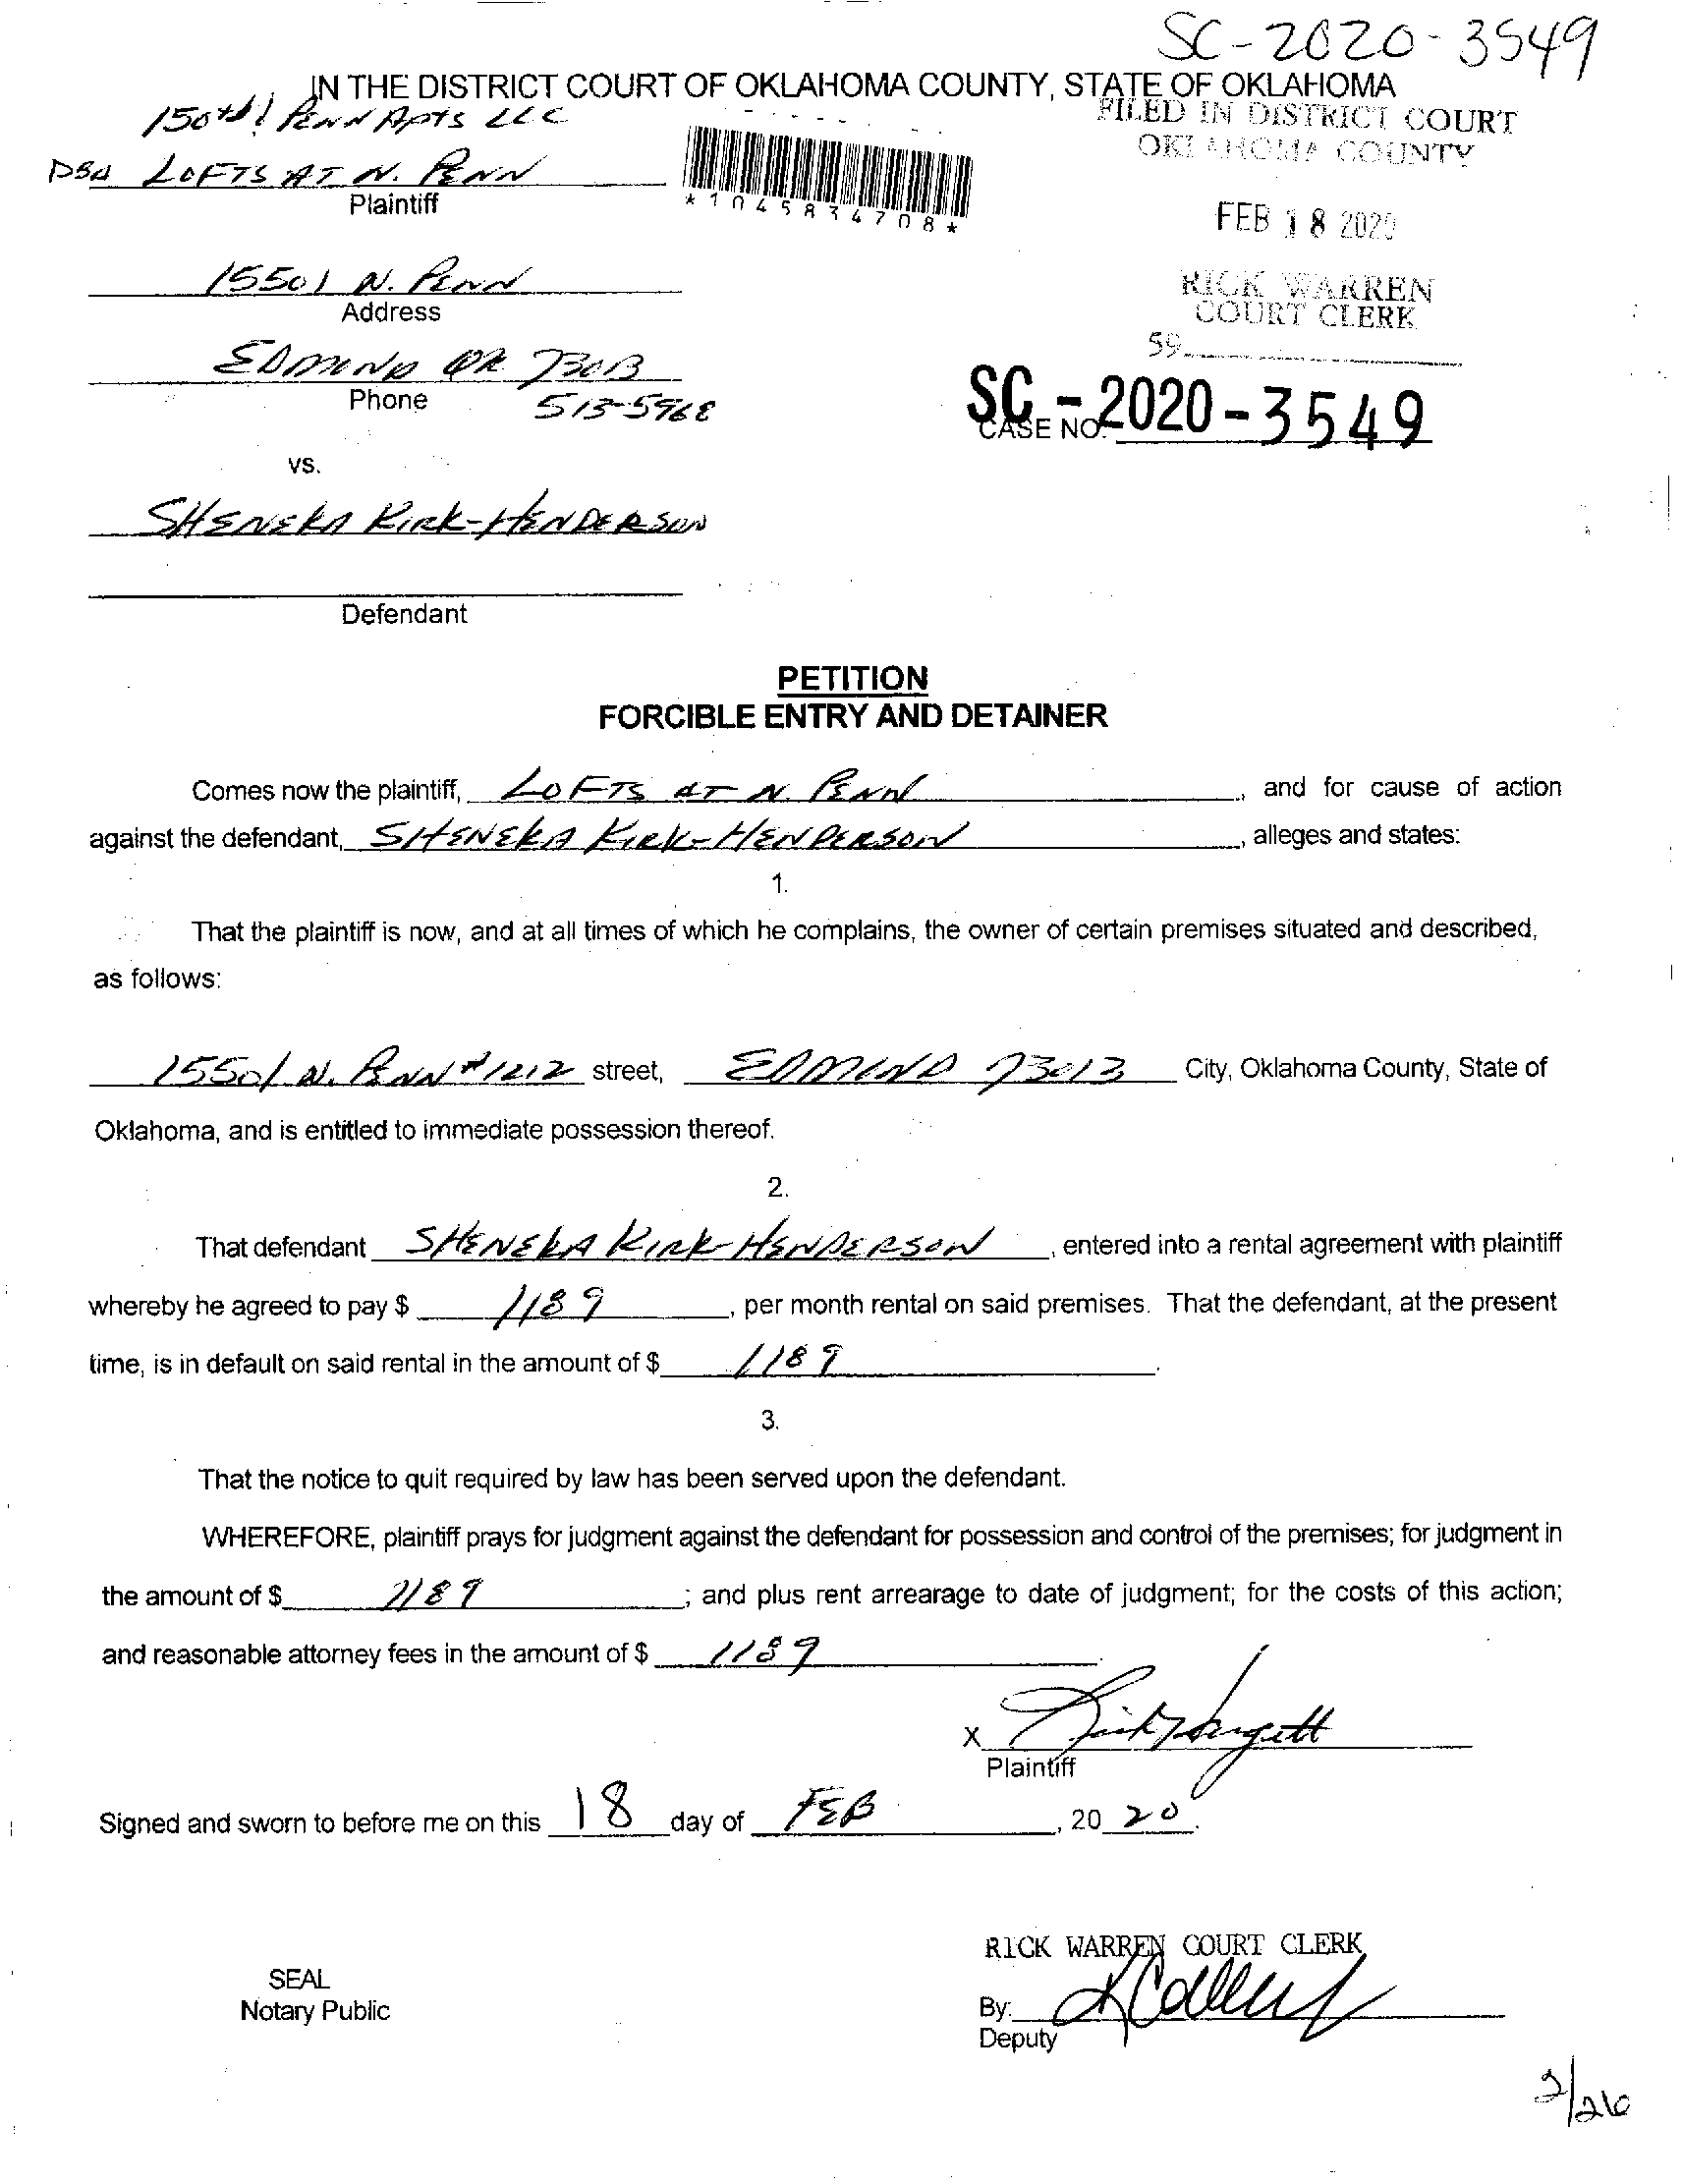 SC-2020-3549
IN THE DISTRICT COURT OF OKLAHOMA COUNTY, STATE OF OKLAHOMA
150th! PENN Apts LLC
FILED IN DISTRICT COURT
OKLAHOMA COUNTY
DBA LOFTS AT N. PENN
Plaintiff
*1045834708*
FEB 18 2020
15501 N. PENN
Address
RICK WARREN
COURT CLERK
59
EDMOND OK 73013
Phone 513-5968
SC-2020-3549
CASE NO.
vs.
SHENEKA KIRK-HENDERSON
Defendant
PETITION
FORCIBLE ENTRY AND DETAINER
Comes now the plaintiff, LOFTS AT N. PENN, and for cause of action
against the defendant, SHENEKA KIRK-HENDERSON, alleges and states:
1.
That the plaintiff is now, and at all times of which he complains, the owner of certain premises situated and described,
as follows:
15501 N. PENN #1212 street, EDMOND 73013 City, Oklahoma County, State of
Oklahoma, and is entitled to immediate possession thereof.
2.
That defendant SHENEKA KIRK-HENDERSON, entered into a rental agreement with plaintiff
whereby he agreed to pay $ 1189, per month rental on said premises. That the defendant, at the present
time, is in default on said rental in the amount of $ 1189.
3.
That the notice to quit required by law has been served upon the defendant.
WHEREFORE, plaintiff prays for judgment against the defendant for possession and control of the premises; for judgment in
the amount of $ 1189; and plus rent arrearage to date of judgment; for the costs of this action;
and reasonable attorney fees in the amount of $ 1189.
X Rick Hargett
Plaintiff
Signed and sworn to before me on this 18 day of FEB, 20 20.
RICK WARREN COURT CLERK
SEAL
Notary Public
By:
Deputy
2/26